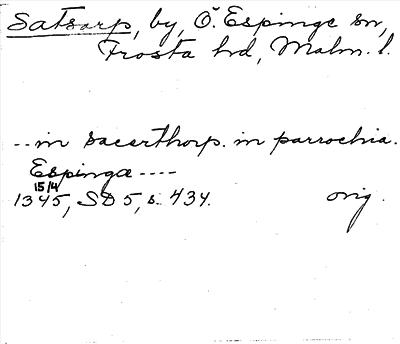 Satsarp, by, Ö. Espinge sn,
Frosta hd, Malm. l.
-- in sacerthorp. in parrochia.
Espinga ----
15/4
1345, SD 5, s. 434. orig.